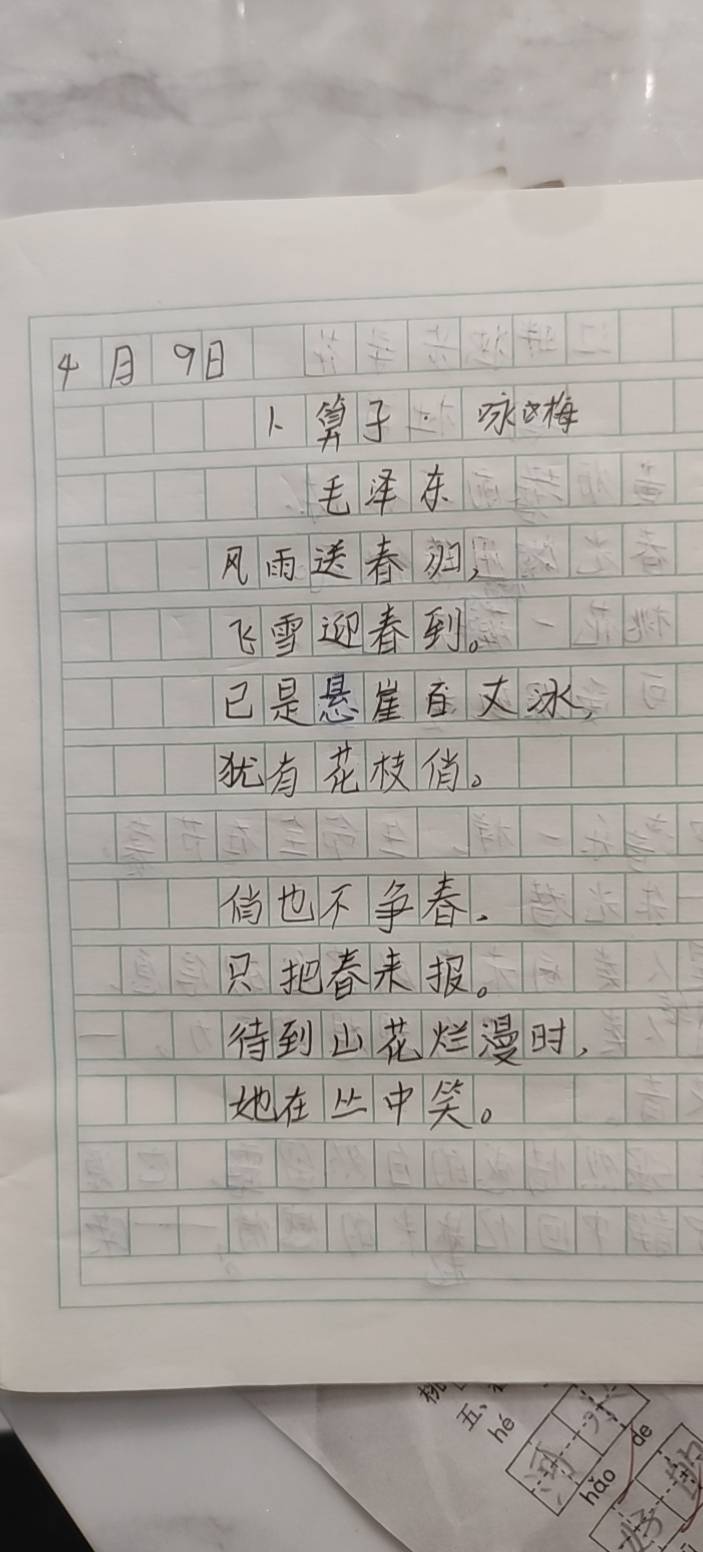 4月9日
卜算子·咏梅
毛泽东
风雨送春归，
飞雪迎春到。
已是悬崖百丈冰，
犹有花枝俏。
俏也不争春，
只把春来报。
待到山花烂漫时，
她在丛中笑。
五、
hé
河
hǎo de
好